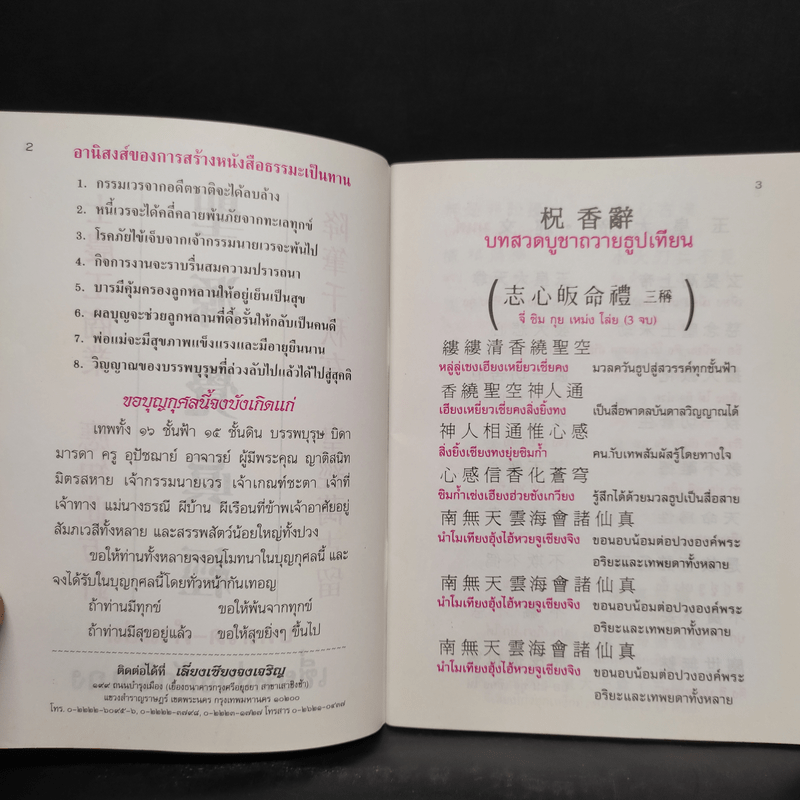 2
อานิสงส์ของการสร้างหนังสือธรรมะเป็นทาน
1. กรรมเวรจากอดีตชาติจะได้ลบล้าง
2. หนี้เวรจะได้คลี่คลายพ้นภัยจากทะเลทุกข์
3. โรคภัยไข้เจ็บจากเจ้ากรรมนายเวรจะพ้นไป
4. กิจการงานจะราบรื่นสมความปรารถนา
5. บารมีคุ้มครองลูกหลานให้อยู่เย็นเป็นสุข
6. ผลบุญจะช่วยลูกหลานที่ดื้อรั้นให้กลับเป็นคนดี
7. พ่อแม่จะมีสุขภาพแข็งแรงและมีอายุยืนนาน
8. วิญญาณของบรรพบุรุษที่ล่วงลับไปแล้วได้ไปสู่สุคติ
ขอบุญกุศลนี้จงบังเกิดแก่
เทพทั้ง ๑๖ ชั้นฟ้า ๑๕ ชั้นดิน บรรพบุรุษ บิดา
มารดา ครู อุปัชฌาย์ อาจารย์ ผู้มีพระคุณ ญาติสนิท
มิตรสหาย เจ้ากรรมนายเวร เจ้าเกณฑ์ชะตา เจ้าที่
เจ้าทาง แม่นางธรณี ผีบ้าน ผีเรือนที่ข้าพเจ้าอาศัยอยู่
สัมภเวสีทั้งหลาย และสรรพสัตว์น้อยใหญ่ทั้งปวง
ขอให้ท่านทั้งหลายจงอนุโมทนาในบุญกุศลนี้ และ
จงได้รับในบุญกุศลนี้โดยทั่วหน้ากันเทอญ
ถ้าท่านมีทุกข์ ขอให้พ้นจากทุกข์
ถ้าท่านมีสุขอยู่แล้ว ขอให้สุขยิ่งๆ ขึ้นไป
ติดต่อได้ที่ เลี่ยงเซียงจงเจริญ
๑๙๙ ถนนบำรุงเมือง (เยื้องธนาคารกรุงศรีอยุธยา สาขาเสาชิงช้า)
แขวงสำราญราษฎร์ เขตพระนคร กรุงเทพมหานคร ๑๐๒๐๐
โทร. ๐-๒๒๒๒-๖๐๙๕-๖, ๐-๒๒๒๒-๓๗๙๔, ๐-๒๒๒๓-๑๗๒๗ โทรสาร ๐-๒๖๒๑-๐๔๓๗
3
祝香辭
บทสวดบูชาถวายธูปเทียน
(志心皈命禮 三稱)
จี่ ซิม กุย เหม่ง โล่ย (3 จบ)
縷縷清香繞聖空
หลู่ลู่เชงเฮียงเหยี่ยวเซี่ยคง มวลควันธูปสู่สวรรค์ทุกชั้นฟ้า
香繞聖空神人通
เฮียงเหยี่ยวเซี่ยคงสิ่งยิ้งทง เป็นสื่อพาดลบันดาลวิญญาณได้
神人相通惟心感
สิ่งยิ้งเซียงทงยุ่ยซิมก้ำ คนกับเทพสัมผัสรู้โดยทางใจ
心感信香化蒼穹
ซิมก้ำเซ่งเฮียงฮ่วยชังเกวียง รู้สึกได้ด้วยมวลธูปเป็นสื่อสาย
南無天雲海會諸仙真
นำโมเทียงฮุ้งไฮ้หวยจูเซียงจิง ขอนอบน้อมต่อปวงองค์พระ
อริยะและเทพยดาทั้งหลาย
南無天雲海會諸仙真
นำโมเทียงฮุ้งไฮ้หวยจูเซียงจิง ขอนอบน้อมต่อปวงองค์พระ
อริยะและเทพยดาทั้งหลาย
南無天雲海會諸仙真
นำโมเทียงฮุ้งไฮ้หวยจูเซียงจิง ขอนอบน้อมต่อปวงองค์พระ
อริยะและเทพยดาทั้งหลาย